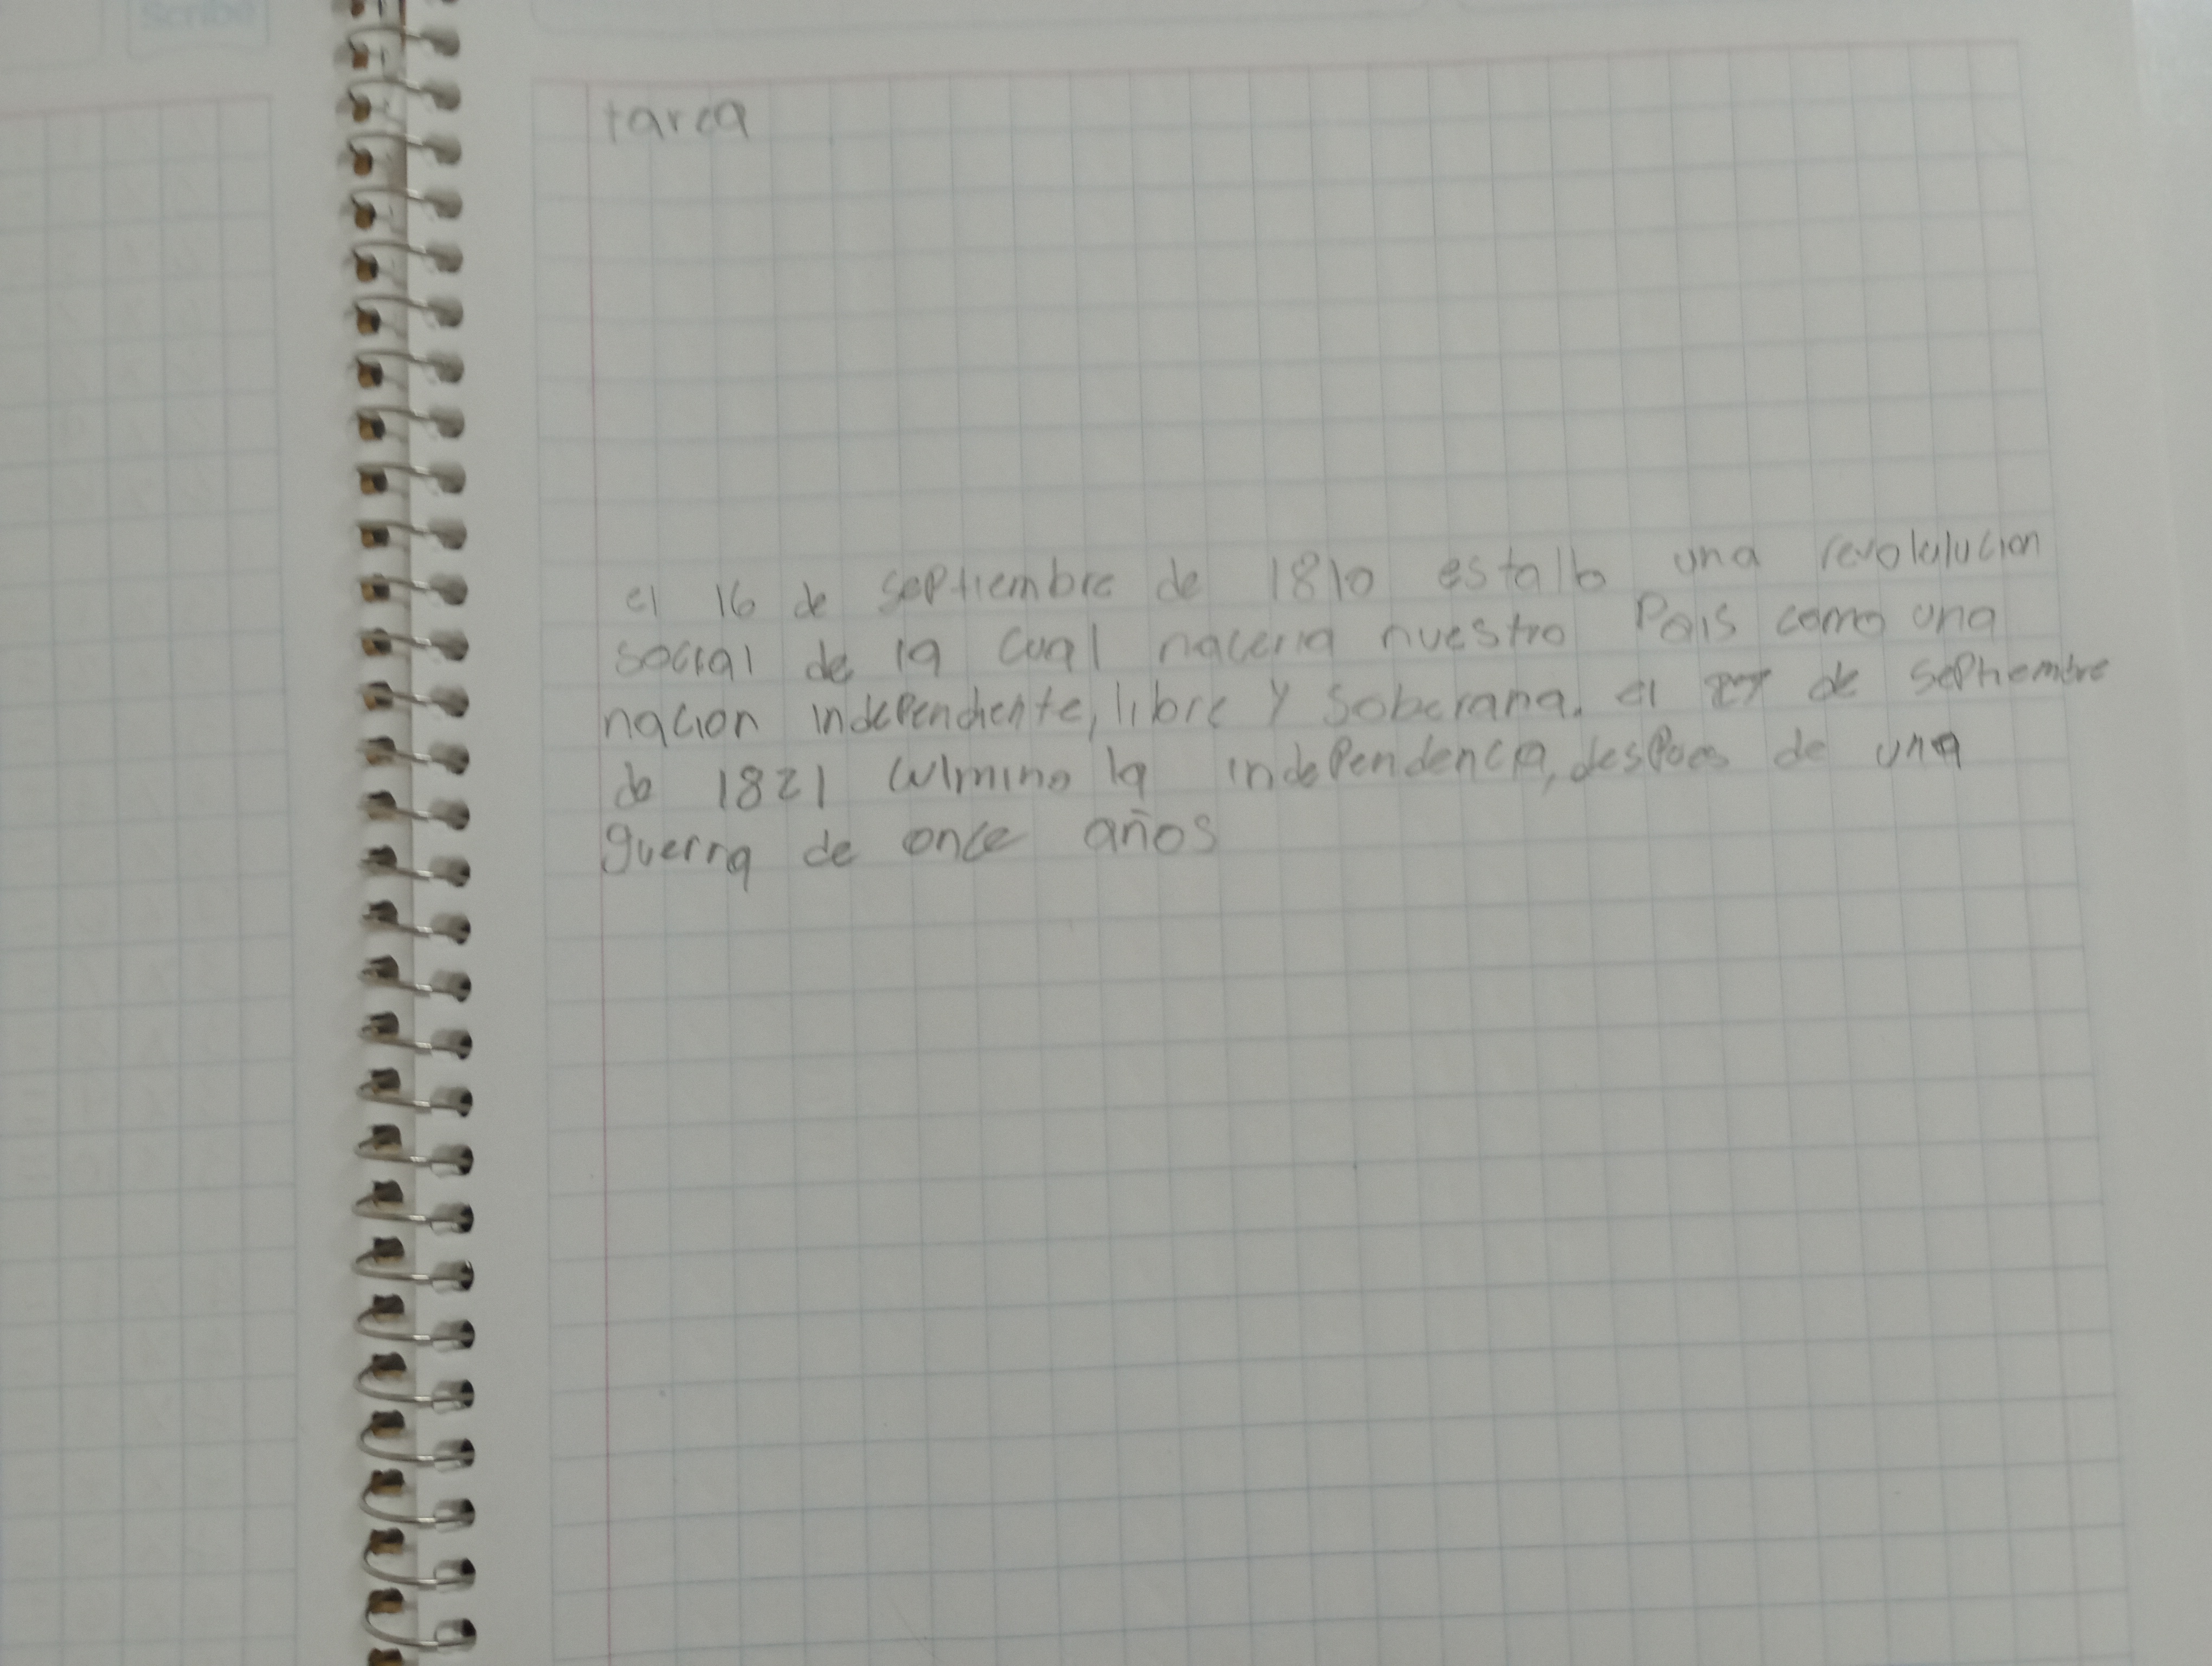 Scribe
tarea
el 16 de septiembre de 1810 estallo una revolulucion
social de la cual naceria nuestro Pais como una
nacion independiente, libre y soberana. el 27 de septiembre
de 1821 culmino la independencia, despues de una
guerra de once años